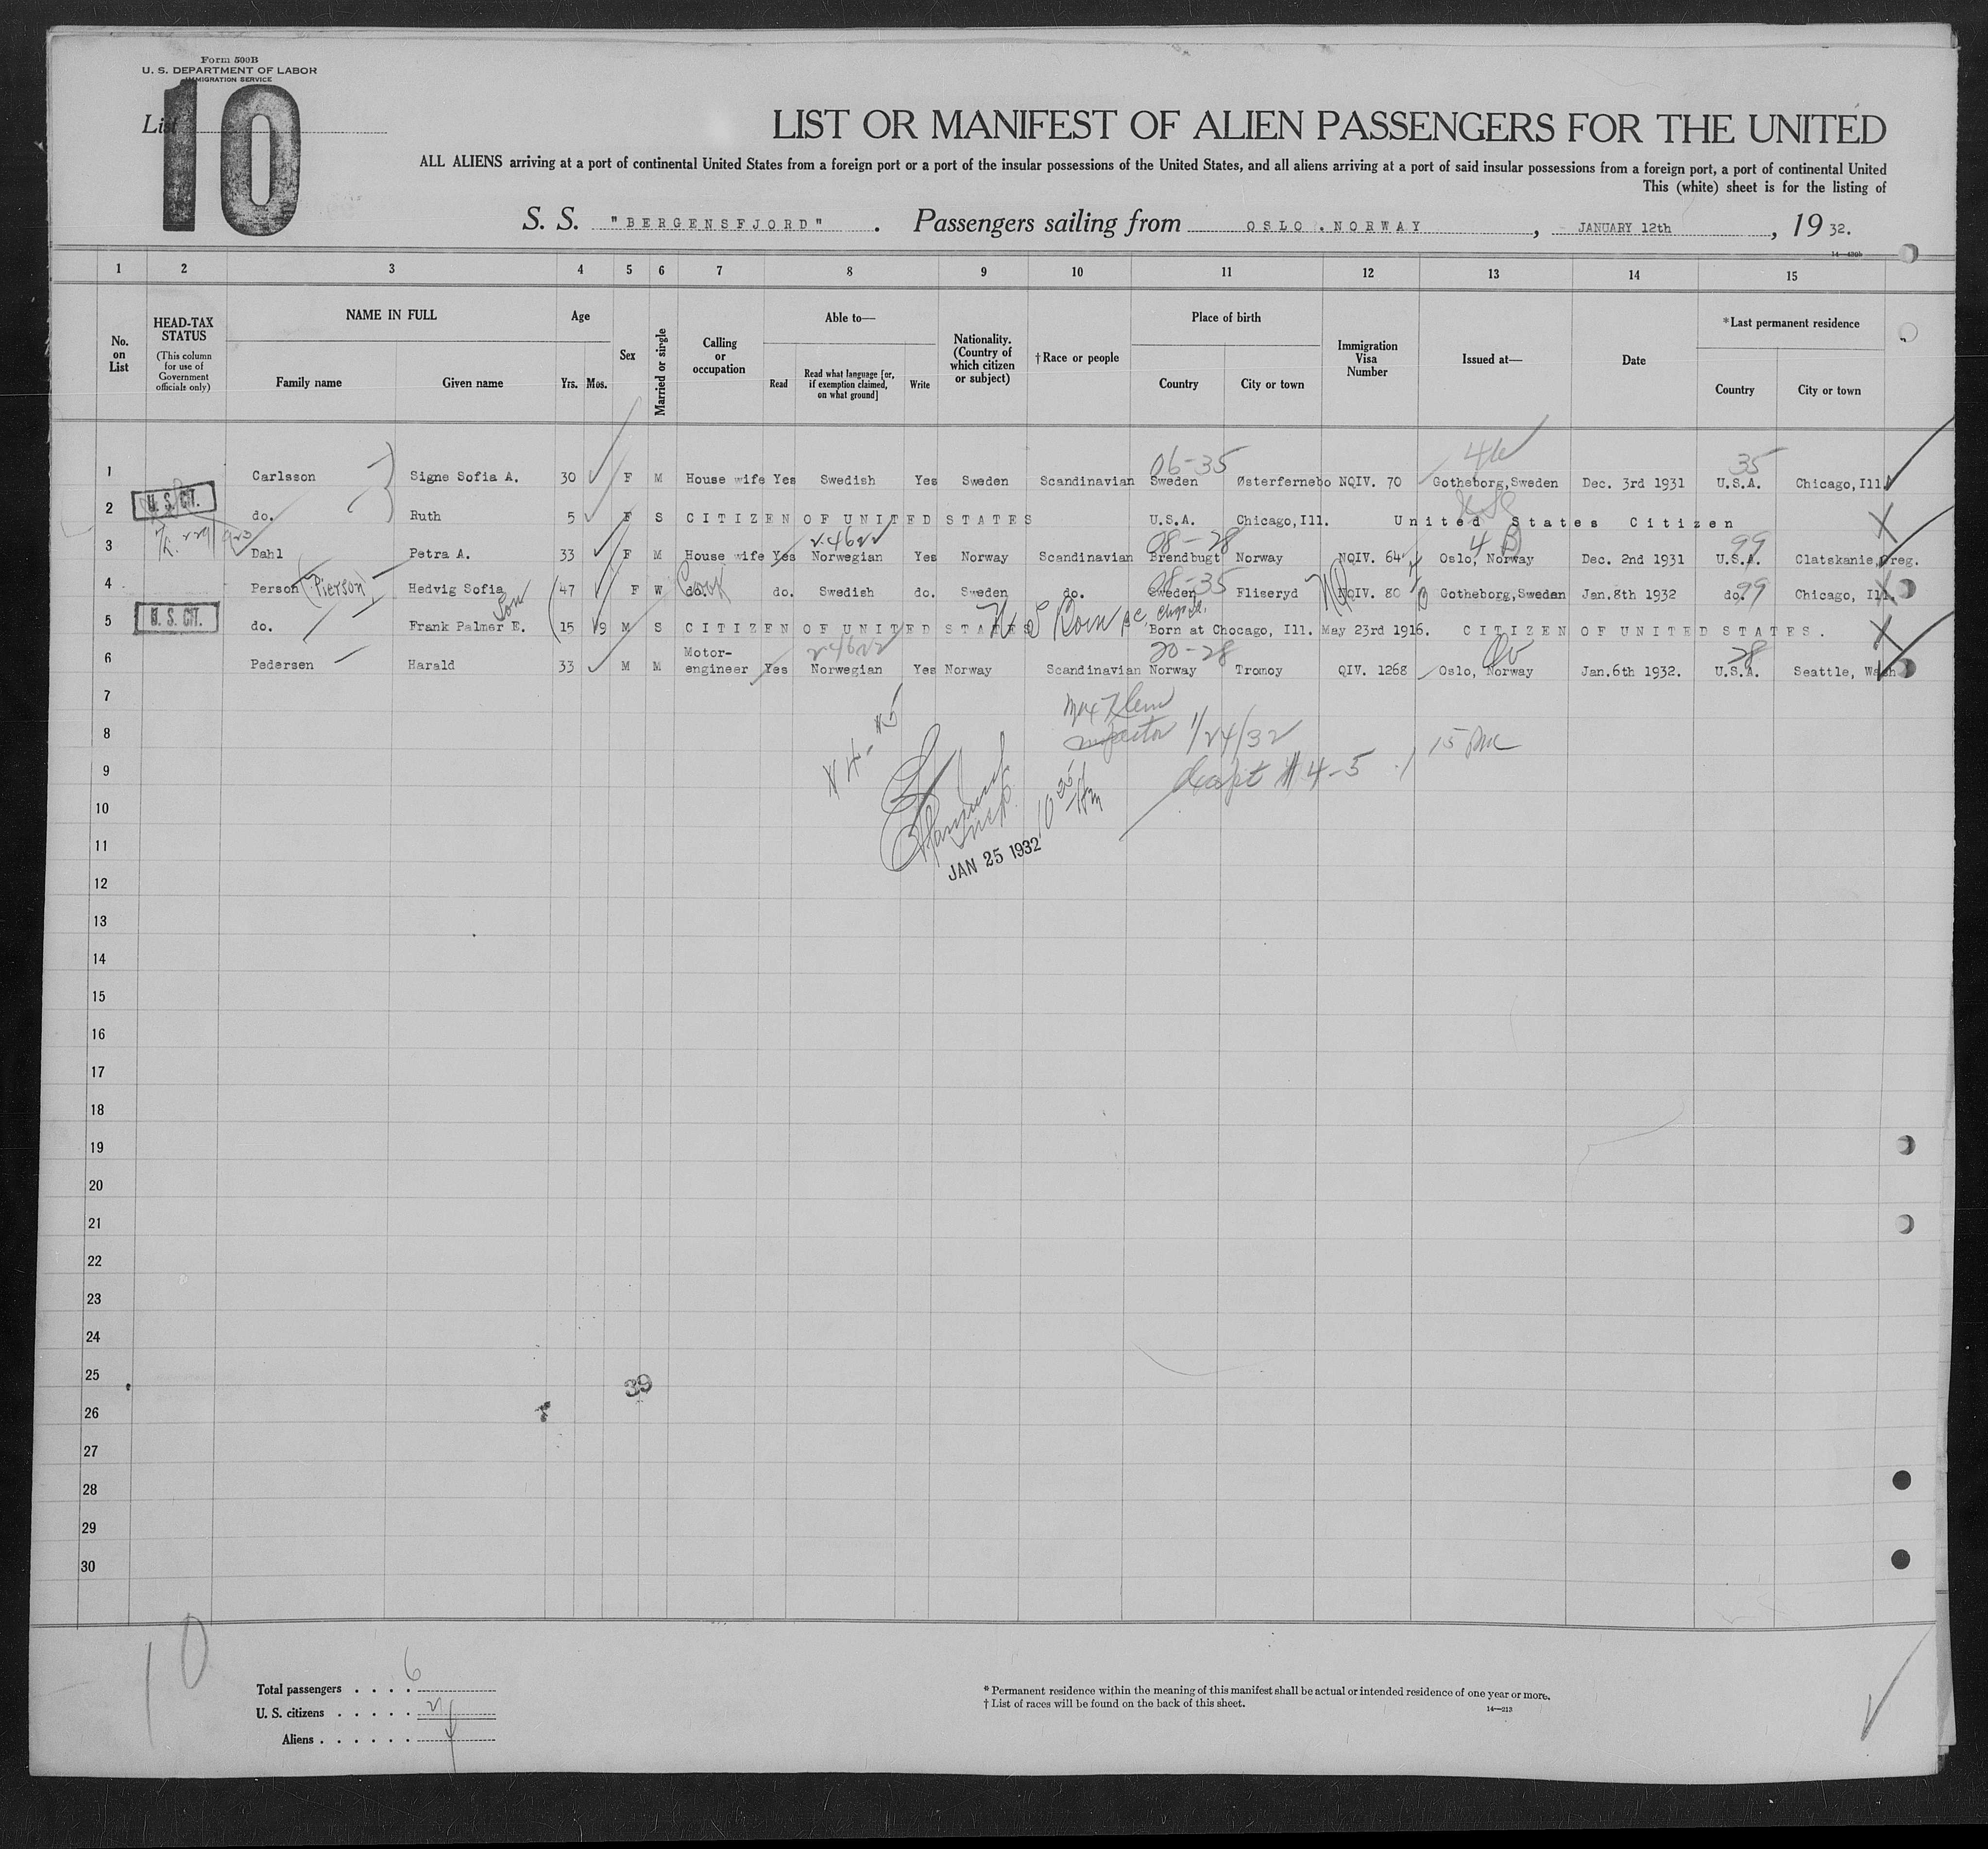 Form 500B
U. S. DEPARTMENT OF LABOR
IMMIGRATION SERVICE
List 10
LIST OR MANIFEST OF ALIEN PASSENGERS FOR THE UNITED
ALL ALIENS arriving at a port of continental United States from a foreign port or a port of the insular possessions of the United States, and all aliens arriving at a port of said insular possessions from a foreign port, a port of continental United
This (white) sheet is for the listing of
S. S. "BERGENSFJORD". Passengers sailing from OSLO. NORWAY, JANUARY 12th, 1932.
1 2 3 4 5 6 7 8 9 10 11 12 13 14 15
No. on List
HEAD-TAX STATUS (This column for use of Government officials only)
NAME IN FULL
Family name
Given name
Age
Yrs. Mos.
Sex
Married or single
Calling or occupation
Able to—
Read
Read what language [or, if exemption claimed, on what ground]
Write
Nationality. (Country of which citizen or subject)
† Race or people
Place of birth
Country
City or town
Immigration Visa Number
Issued at—
Date
*Last permanent residence
Country
City or town
06-35 35
1 Carlsson Signe Sofia A. 30 F M House wife Yes Swedish Yes Sweden Scandinavian Sweden Østerfernebo NQIV. 70 Gotheborg,Sweden Dec. 3rd 1931 U.S.A. Chicago,Ill.
U. S. CIT.
2 do. Ruth 5 F S CITIZEN OF UNITED STATES U.S.A. Chicago,Ill. United States Citizen
08-28 4 B 99
3 Dahl Petra A. 33 F M House wife Yes Norwegian Yes Norway Scandinavian Brendbugt Norway NQIV. 64 Oslo, Norway Dec. 2nd 1931 U.S.A. Clatskanie,Oreg.
08-35 99
4 Person (Pierson) Hedvig Sofia 47 F W do. Cook do. Swedish do. Sweden do. Sweden Fliseryd NQIV. 80 Gotheborg,Sweden Jan.8th 1932 do. Chicago, Ill.
U. S. CIT.
5 do. Frank Palmer E. Son 15 9 M S CITIZEN OF UNITED STATES U S Born Born at Chocago, Ill. May 23rd 1916. CITIZEN OF UNITED STATES.
20-28 28
6 Pedersen Harald 33 M M Motor-engineer Yes Norwegian Yes Norway Scandinavian Norway Tromoy QIV. 1268 Oslo, Norway Jan.6th 1932. U.S.A. Seattle, Wash
7
8 1/24/32
9 #4-5
10
11
JAN 25 1932
12
13
14
15
16
17
18
19
20
21
22
23
24
25
39
26
27
28
29
30
10
Total passengers . . . . 6
U. S. citizens . . . . . 2
Aliens . . . . . . 4
* Permanent residence within the meaning of this manifest shall be actual or intended residence of one year or more.
† List of races will be found on the back of this sheet.
14—213